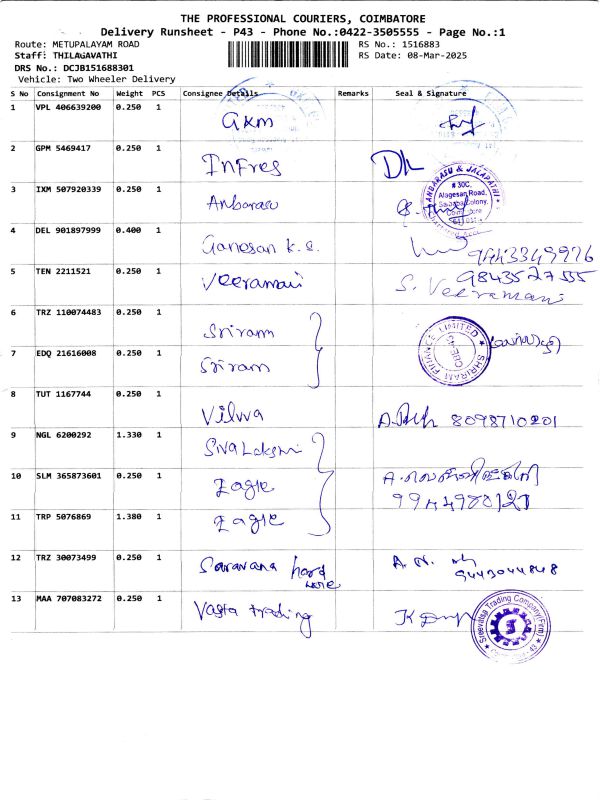 THE PROFESSIONAL COURIERS, COIMBATORE
Delivery Runsheet - P43 - Phone No.:0422-3505555 - Page No.:1
Route: METUPALAYAM ROAD RS No.: 1516883
Staff: THILAGAVATHI RS Date: 08-Mar-2025
DRS No.: DCJB151688301
Vehicle: Two Wheeler Delivery
S No Consignment No Weight PCS Consignee Details Remarks Seal & Signature
1 VPL 406639200 0.250 1 akm
2 GPM 5469417 0.250 1 Infres
3 IXM 507920339 0.250 1 Anbarasu
ANBARASU & JALAPATHI
# 30C,
Alagesan Road,
4 DEL 901897999 0.400 1 Ganesan k.
9443349976
5 TEN 2211521 0.250 1 Veeramani 9843527555
S. Veeramani
6 TRZ 110074483 0.250 1 Sriram
SHRIRAM FINANCE LIMITED
7 EDQ 21616008 0.250 1 Sriram
8 TUT 1167744 0.250 1 Vilwa 8098710201
9 NGL 6200292 1.330 1 Sivalakshmi
10 SLM 365873601 0.250 1 Eagle
11 TRP 5076869 1.380 1 Eagle
12 TRZ 30073499 0.250 1 Saravana hardware A. N. 9443044848
13 MAA 707083272 0.250 1 Vasta trading K
Sreevatsa Trading Company (Firm)